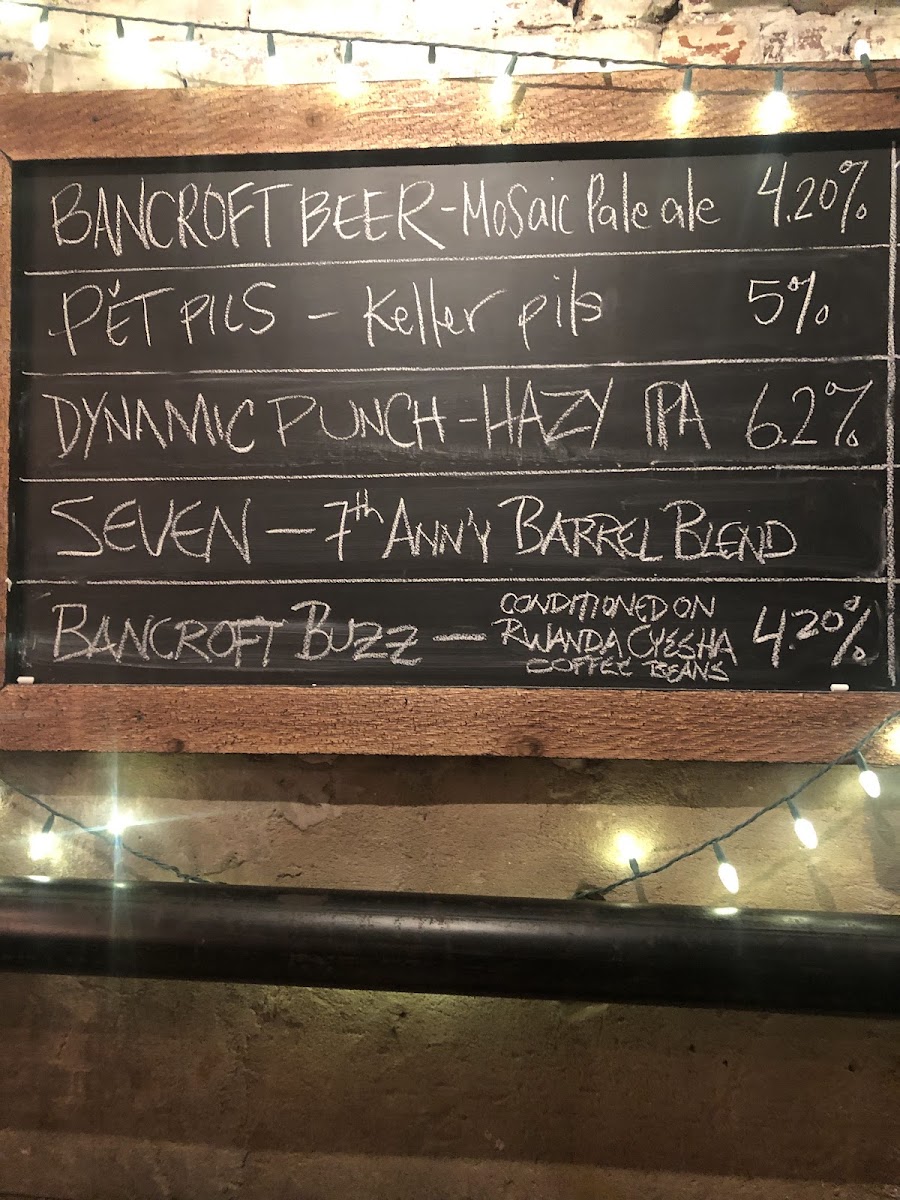 BANCROFT BEER-Mosaic Pale ale 4.20%
PĚT PILS - Keller pils 5%
DYNAMIC PUNCH-HAZY IPA 6.2%
SEVEN - 7th ANN'Y BARREL BLEND
BANCROFT BUZZ - CONDITIONED ON
RWANDA CYESHA 4.20%
COFFEE BEANS